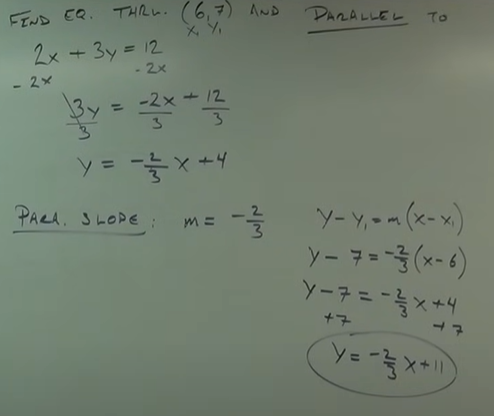 FIND EQ. THRU. (6,7) AND PARALLEL TO
x₁ y₁
2x + 3y = 12
-2x -2x
3y/3 = -2x/3 + 12/3
y = -2/3 x + 4
PARA. SLOPE: m = -2/3
y - y₁ = m(x - x₁)
y - 7 = -2/3(x - 6)
y - 7 = -2/3 x + 4
+7 +7
y = -2/3 x + 11